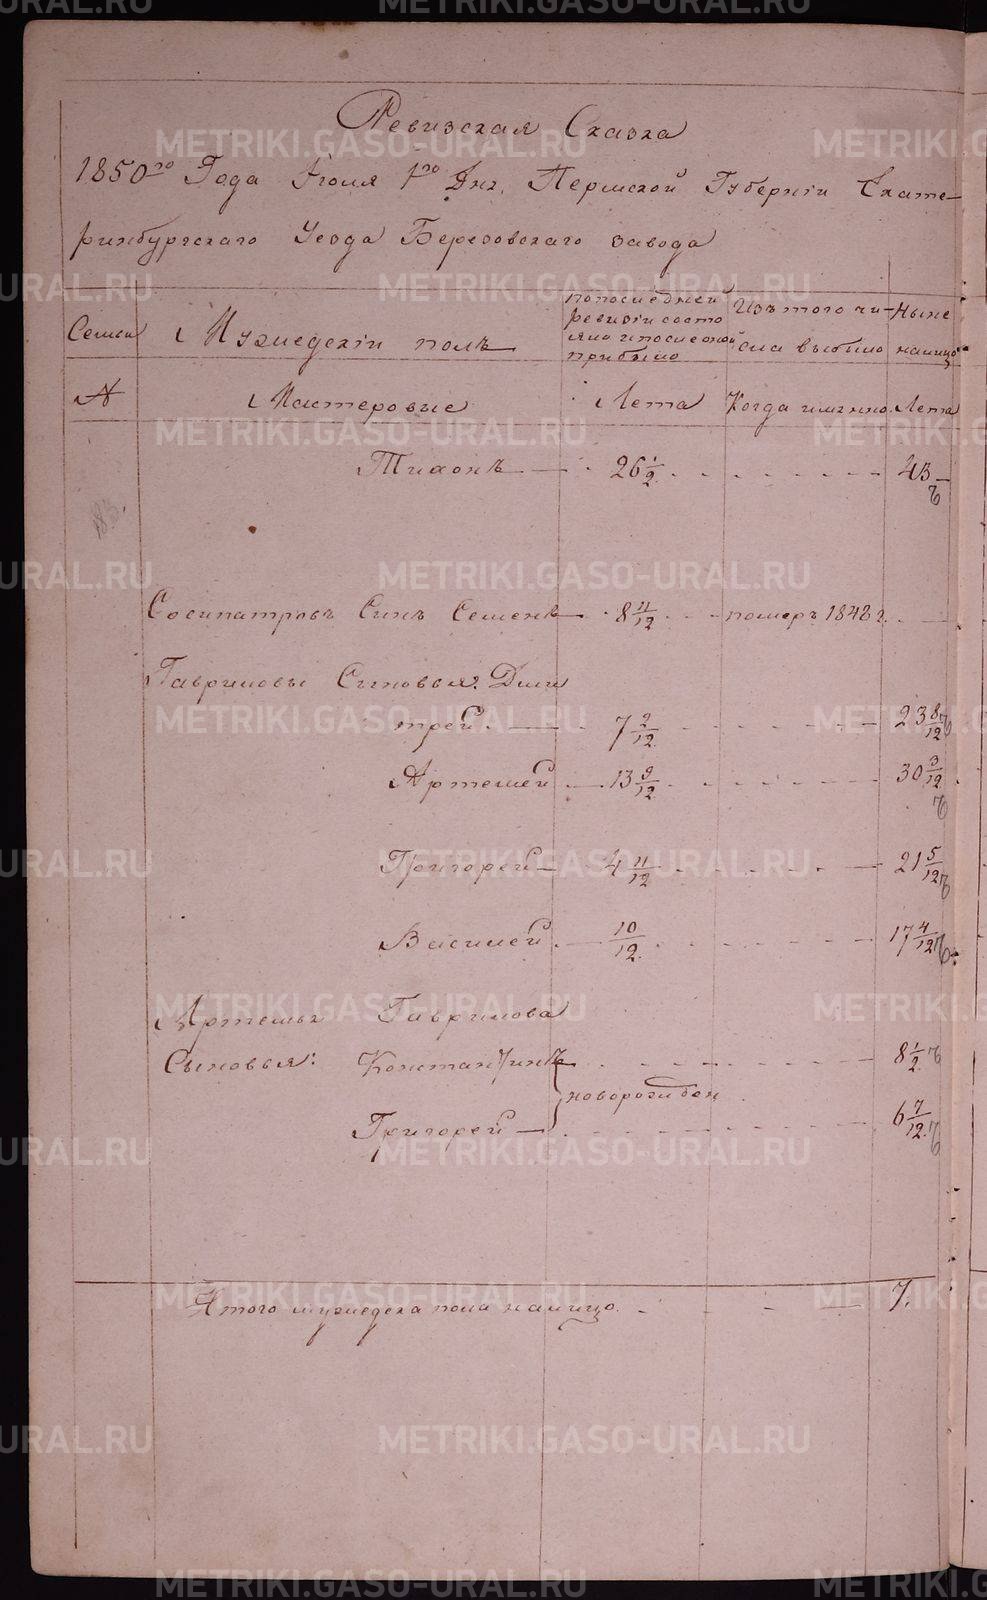 Ревизская Сказка
1850го Года Июля 1го Дня, Пермской Губернiи Екате-
ринбургскаго Уезда Березовскаго завода
Семьи
Мужедскiи полъ
попоследней
ревизiи состо
яло ипоследной
прибыло
Изътого чи-
сла выбыло
Ныне
налицо
№
Мастеровые
Лета
Когда имянно
Лета
Тихонъ — 26 1/2 43
Сосипатровъ Синъ Семенъ — 8 11/12 померъ 1848 г.
Гавриловы Сыновья: Дми
трей — 7 2/12 23 8/12
Артемей — 13 9/12 30 3/12
Григорей — 4 11/12 21 5/12
Василей — 10/12 17 4/12
Артемья Гаврилова
Сыновья: Константинъ 8 1/2
новорожден
Григорей — 6 7/12
Итого мужедска пола налицо. 7.
METRIKI.GASO-URAL.RU